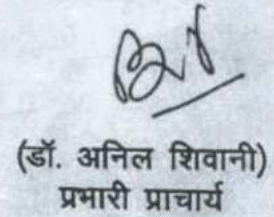 (डॉ. अनिल शिवानी)
प्रभारी प्राचार्य